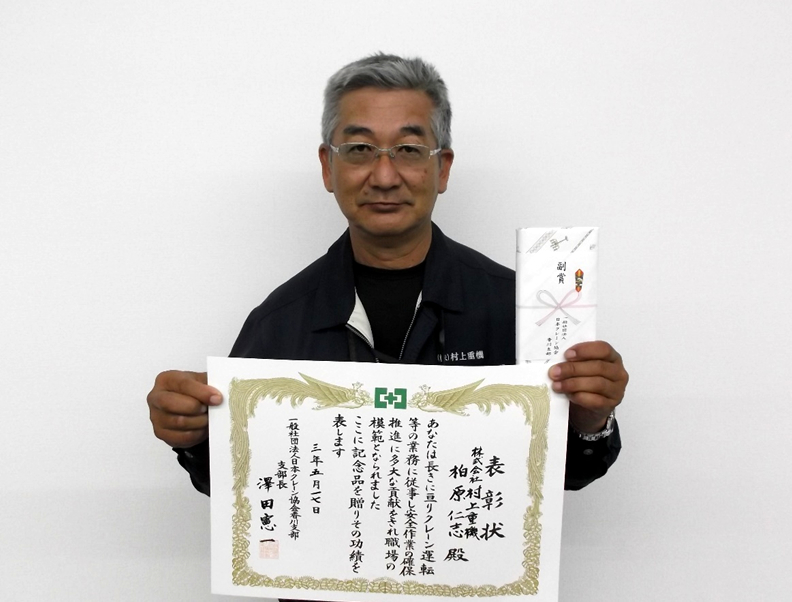 表彰状
株式会社村上重機
柏原仁志殿
あなたは長きに亘りクレーン運転
等の業務に従事し安全作業の確保
推進に多大な貢献をされ職場の
模範となられました
ここに記念品を贈りその功績を
表します
三年五月一七日
一般社団法人日本クレーン協会香川支部
支部長
澤田憲一
副賞
一般社団法人
日本クレーン協会
香川支部
(株)村上重機